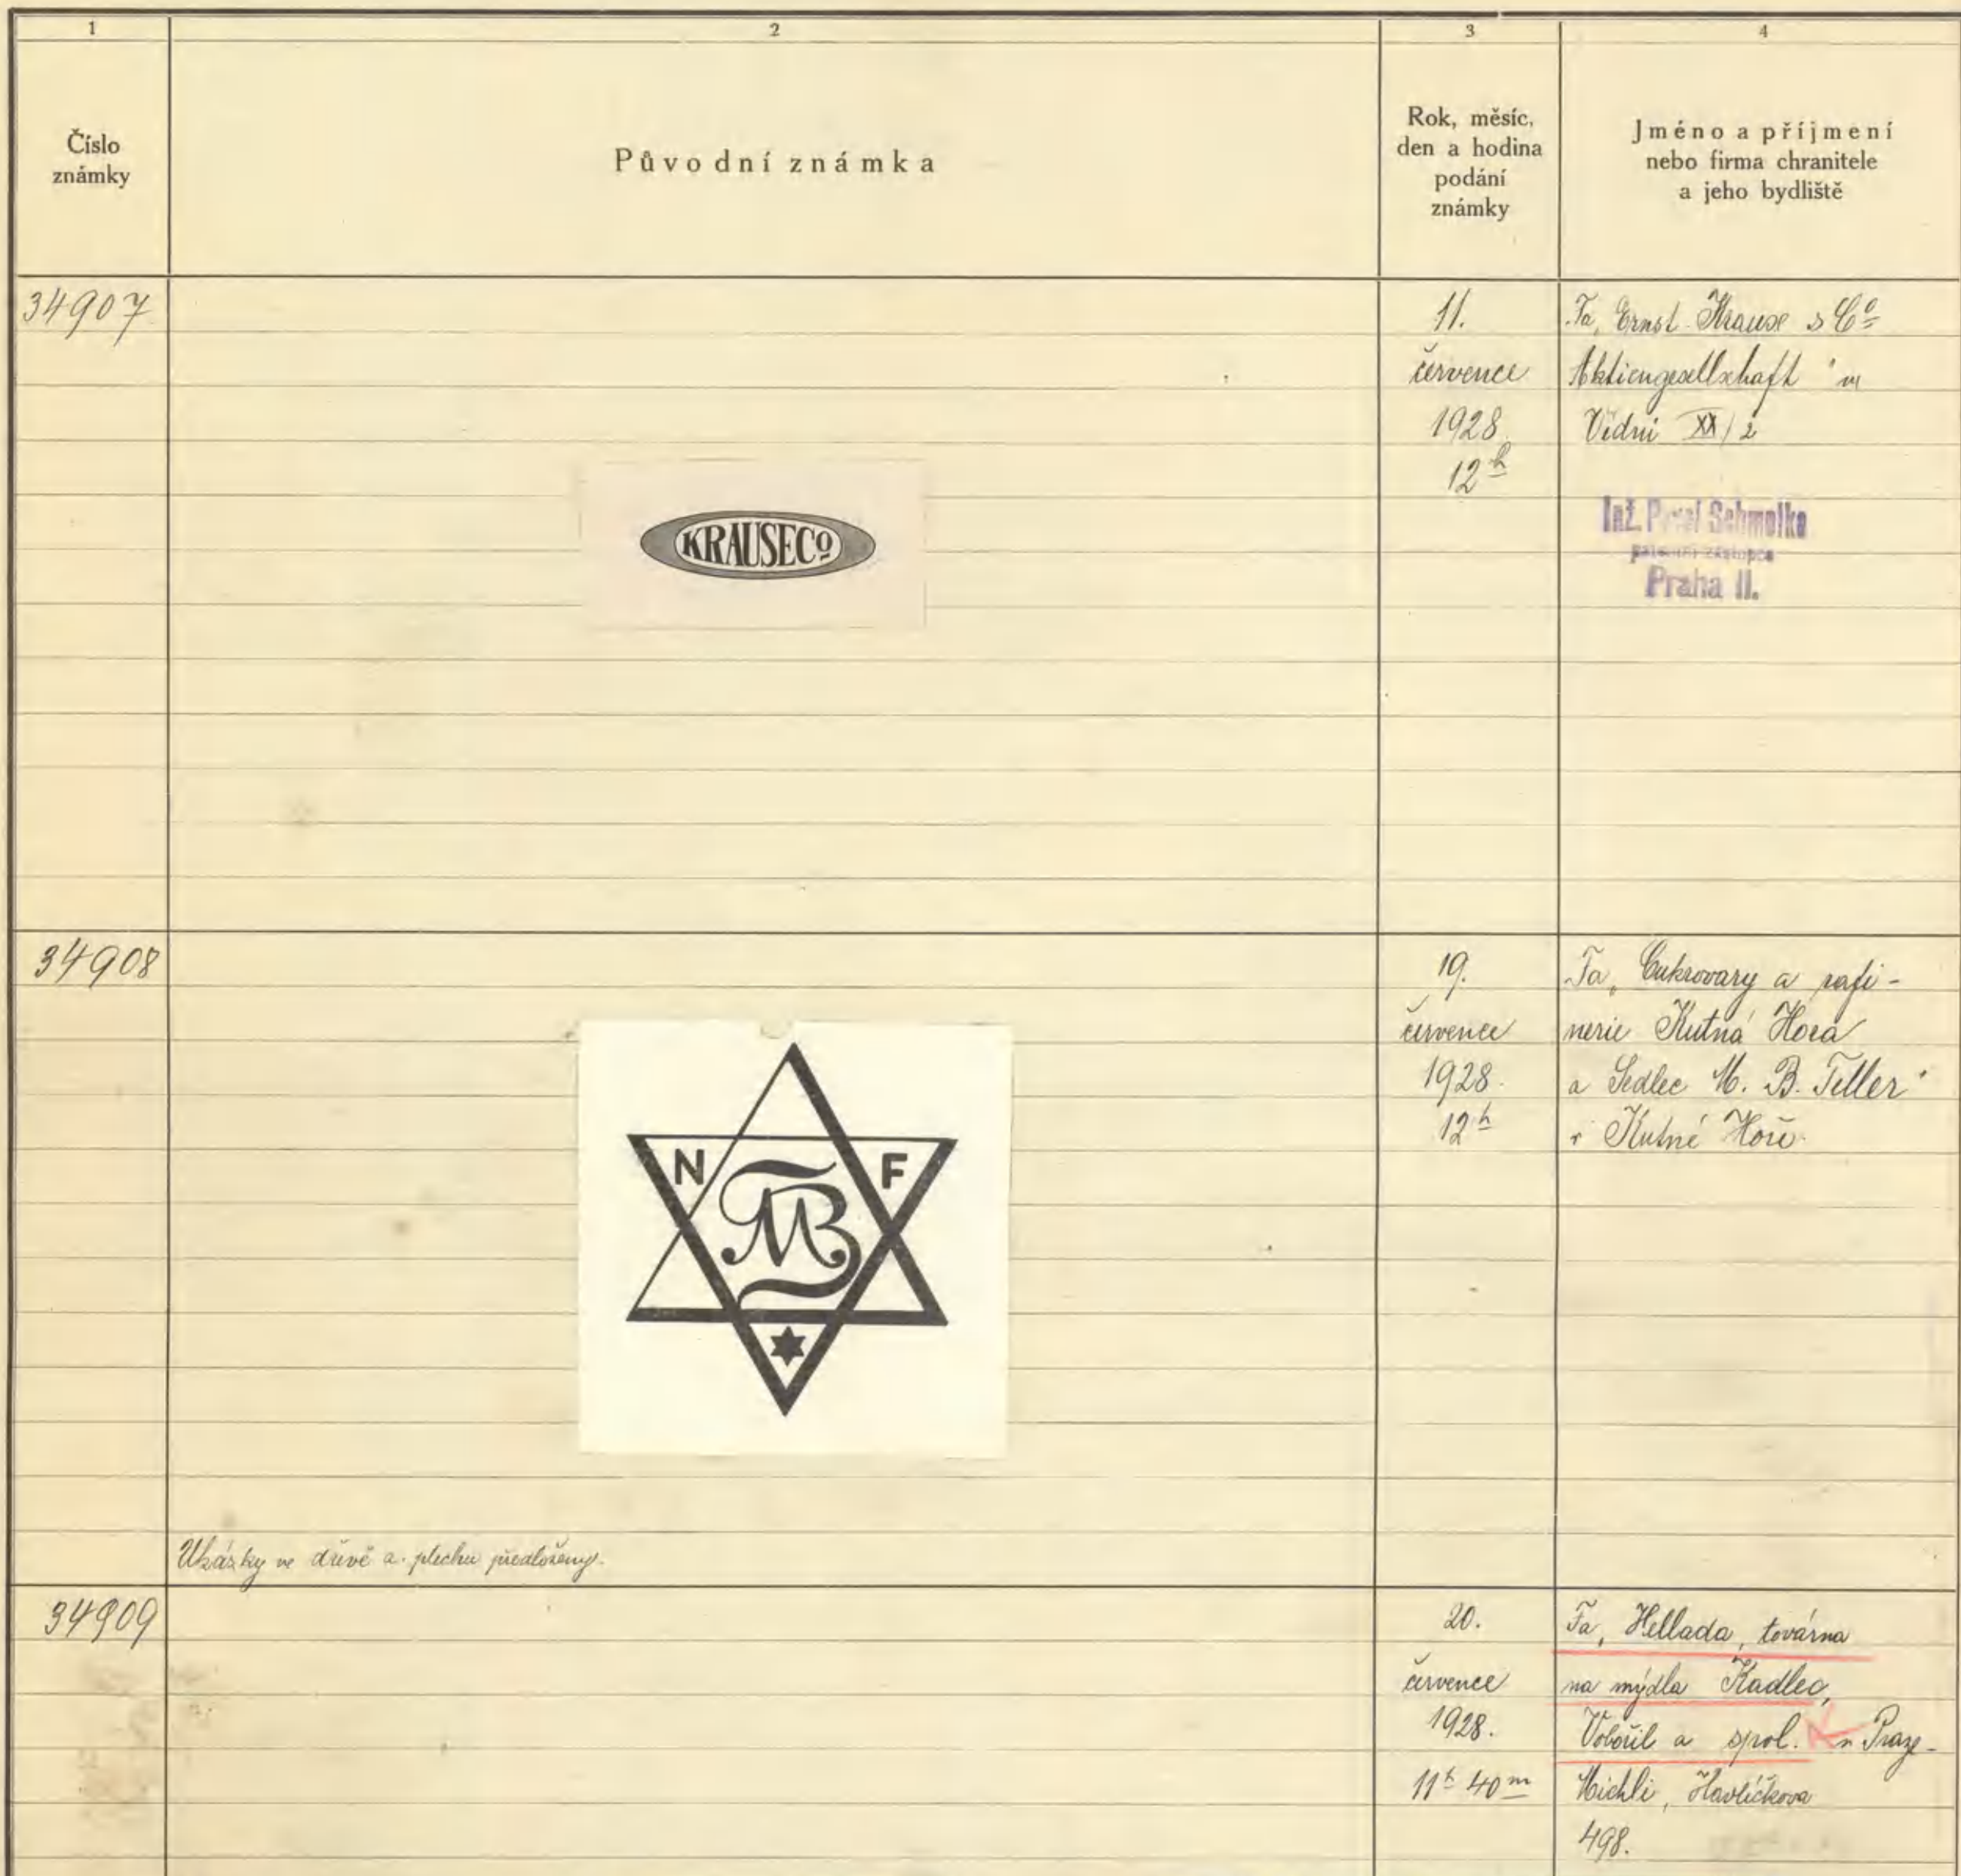 1
2
3
4
Číslo
známky
Původní známka
Rok, měsíc,
den a hodina
podání
známky
Jméno a příjmení
nebo firma chranitele
a jeho bydliště
34907
KRAUSECo
11.
července
1928.
12h
Fa „Ernst Krause & Co
Aktiengesellschaft" ve
Vídni XX/2
Inž. Pavel Schmolka
patentní zástupce
Praha II.
34908
N F
MB
19.
července
1928.
12h
Fa „Cukrovary a rafi-
nerie Kutná Hora
a Sedlec M. B. Teller"
v Kutné Hoře.
Ukázky ve dřevě a plechu předloženy.
34909
20.
července
1928.
11h 40m
Fa „Hellada, továrna
na mýdla Kadlec,
Vobořil a spol. v Praze-
Michli, Havlíčkova
498.